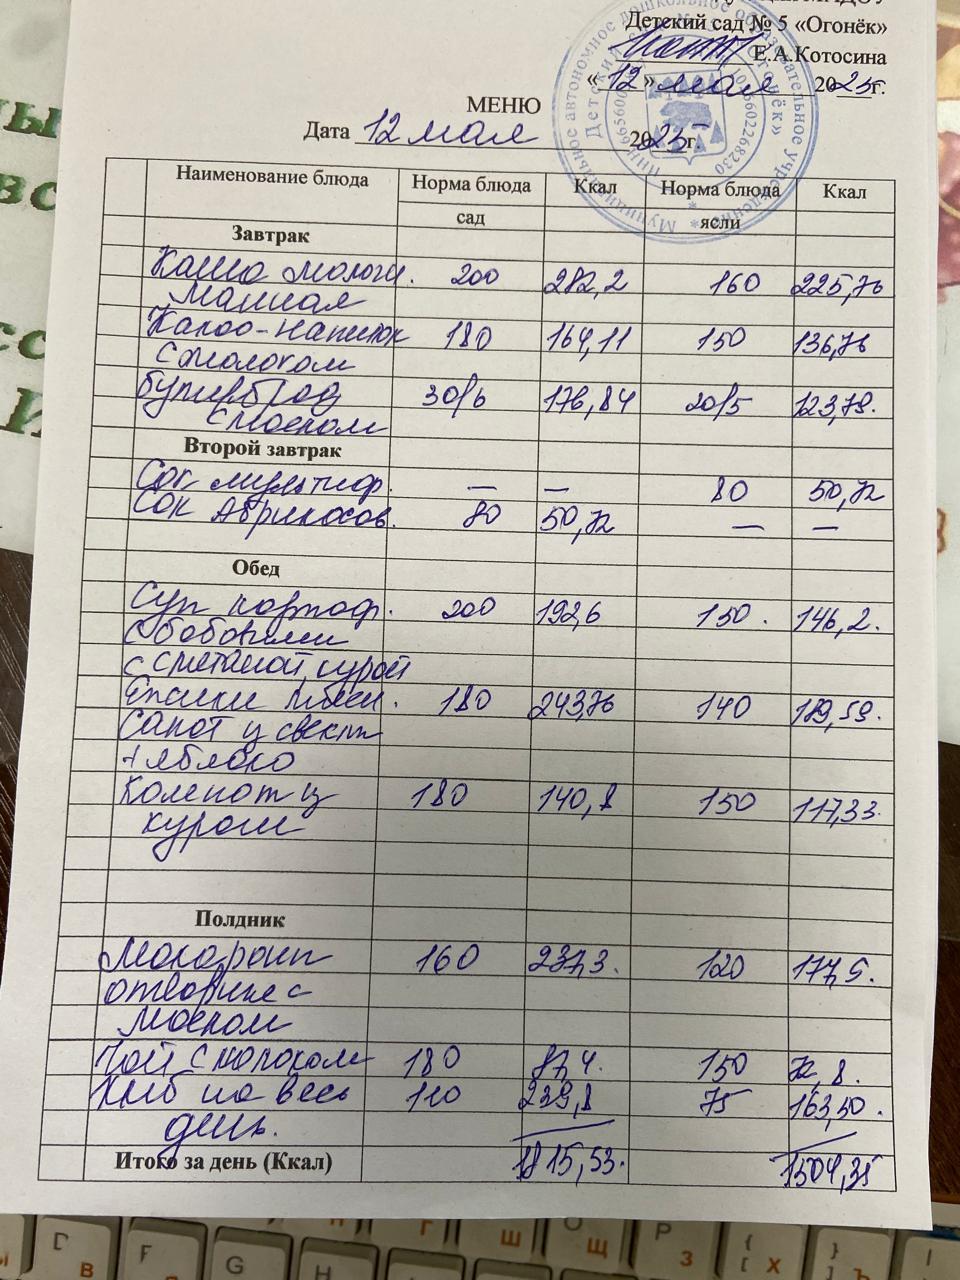 Детский сад № 5 «Огонёк»
Е.А.Котосина
« 12 » мая 2025г.
МЕНЮ
Дата 12 мая 2025г.
Наименование блюда Норма блюда Ккал Норма блюда Ккал
сад ясли
Завтрак
Каша молочн. 200 282,2 160 225,76
манная
Какао-напиток 180 164,11 150 136,76
с молоком
бутерброд 30/6 176,84 20/5 123,79.
с маслом
Второй завтрак
Сок мультифр. — — 80 50,72
Сок Абрикосов. 80 50,72 — —
Обед
Суп картоф. 200 192,6 150. 146,2.
с бобовыми
с сметаной, курой
Ёжики мясн. 180 243,76 140 189,59.
Салат из свеклы
+ яблоко
Компот из 180 140,8 150 117,33.
кураги
Полдник
Макароны 160 237,3. 120 177,5.
отварные с
маслом
Чай с молоком 180 87,4. 150 72,8.
Хлеб на весь 110 239,8 75 163,50.
день.
Итого за день (Ккал) 1815,53. 1504,35